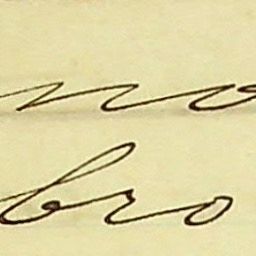 no
bro